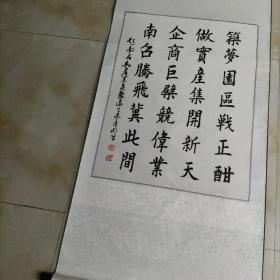 築夢園區戰正酣
做實産集開新天
企商巨擘競偉業
南召騰飛冀此間